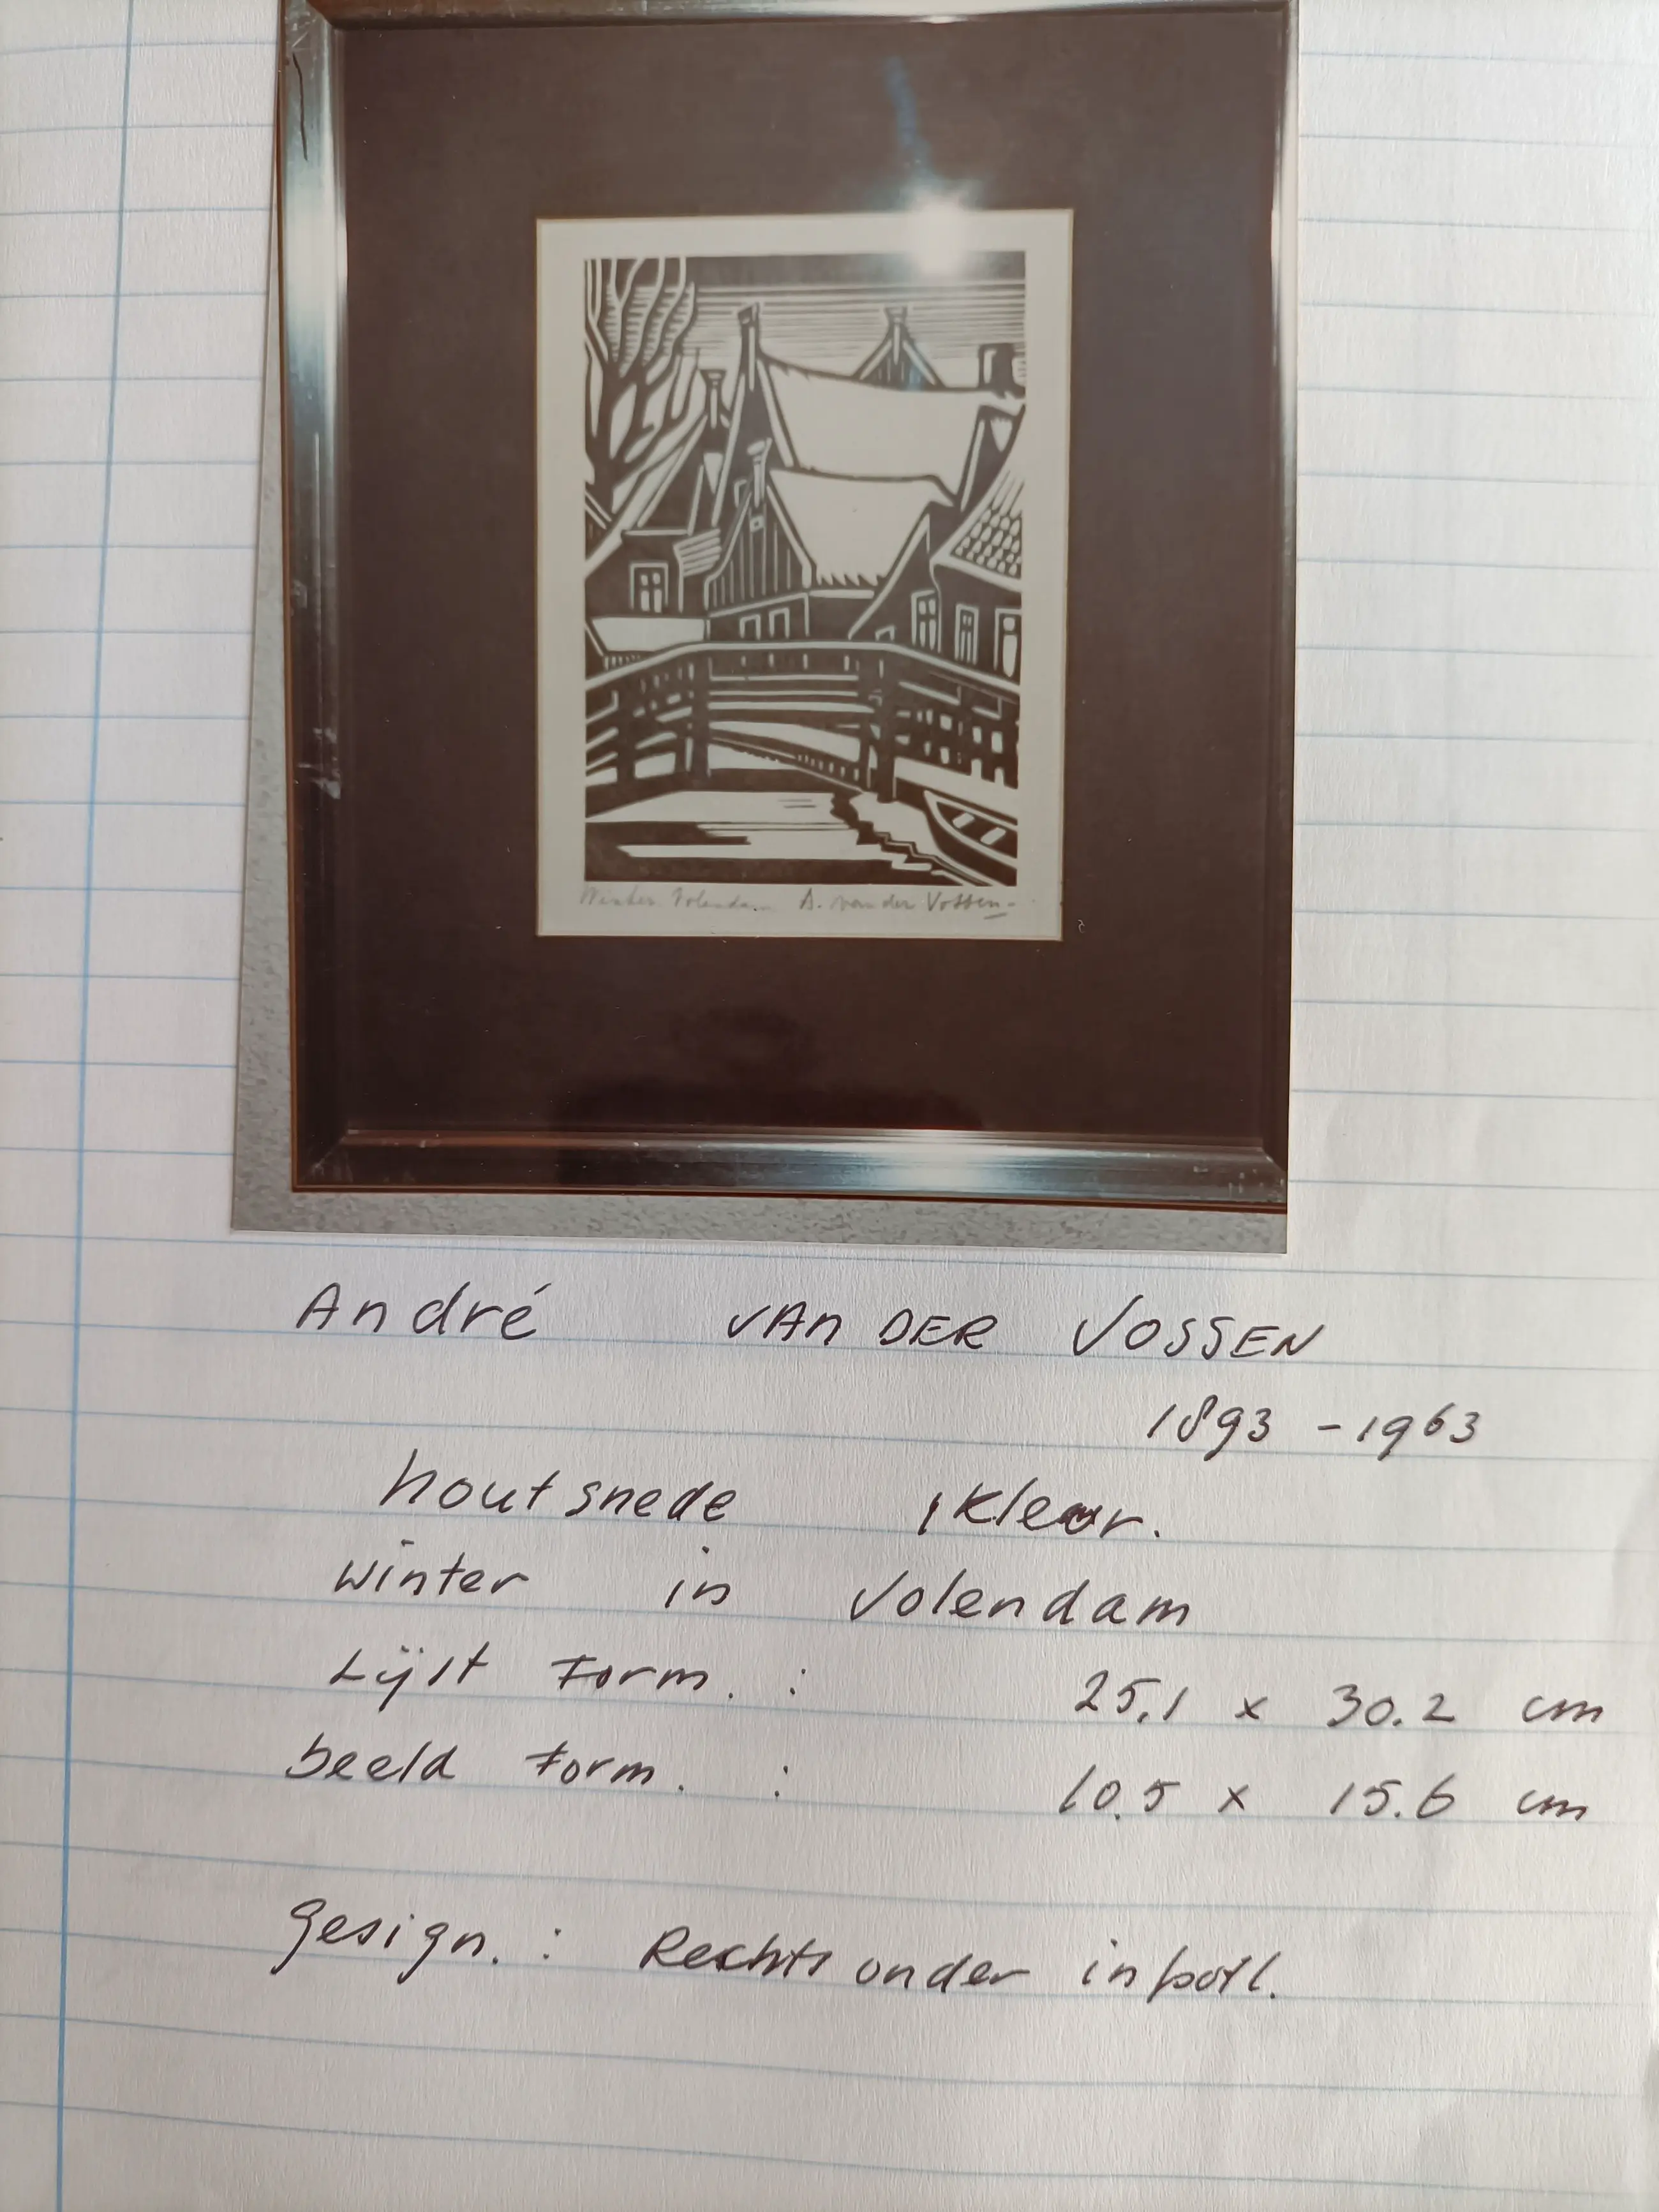 Winter Volendam A. van der Vossen
André VAN DER VOSSEN
1893 - 1963
houtsnede 1 Kleur.
winter in Volendam
Lijst Form. : 25,1 x 30.2 cm
beeld Form. : 10.5 x 15.6 cm
gesign. : Rechts onder in potl.